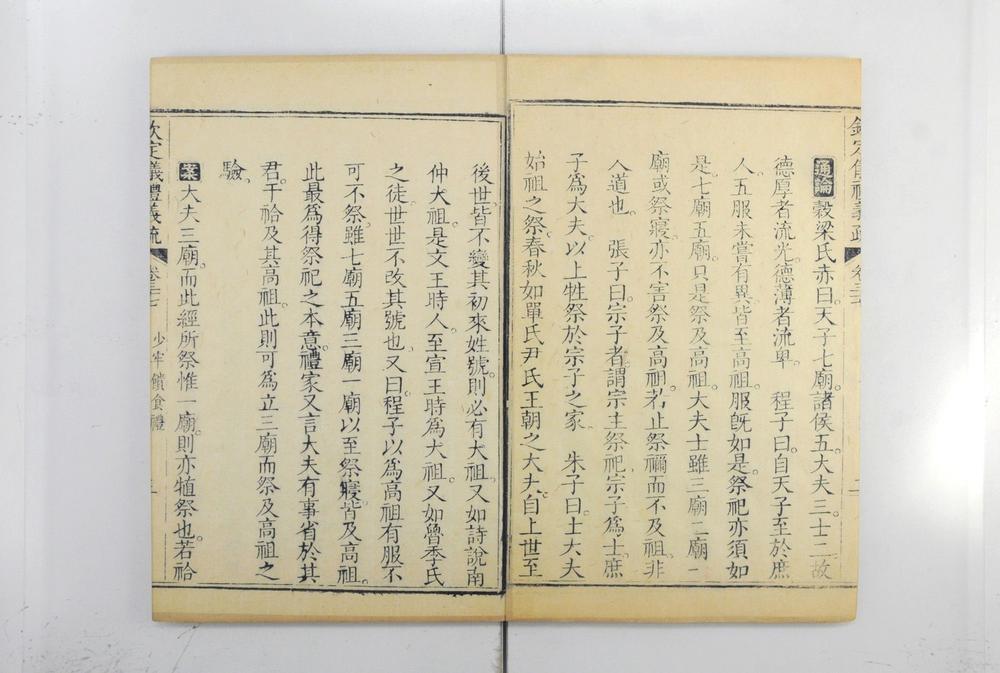 欽定儀禮義疏 卷三十七 二
通論 穀梁氏赤曰天子七廟諸侯五大夫三士二故
德厚者流光德薄者流卑 程子曰自天子至於庶
人五服未嘗有異皆至高祖服旣如是祭祀亦須如
是七廟五廟只是祭及高祖大夫士雖三廟二廟一
廟或祭寢亦不害祭及高祖若止祭禰而不及祖非
人道也 張子曰宗子者謂宗主祭祀宗子爲士庶
子爲大夫以上牲祭於宗子之家 朱子曰士大夫
始祖之祭春秋如單氏尹氏王朝之大夫自上世至
後世皆不變其初來姓號則必有大祖又如詩說南
仲大祖是文王時人至宣王時爲大祖又如魯季氏
之徒世世不改其號也又曰程子以爲高祖有服不
可不祭雖七廟五廟三廟一廟以至祭寢皆及高祖
此最爲得祭祀之本意禮家又言大夫有事省於其
君干祫及其高祖此則可爲立三廟而祭及高祖之
驗
案 大夫三廟而此經所祭惟一廟則亦犆祭也若祫
欽定儀禮義疏 卷三十七 少牢饋食禮